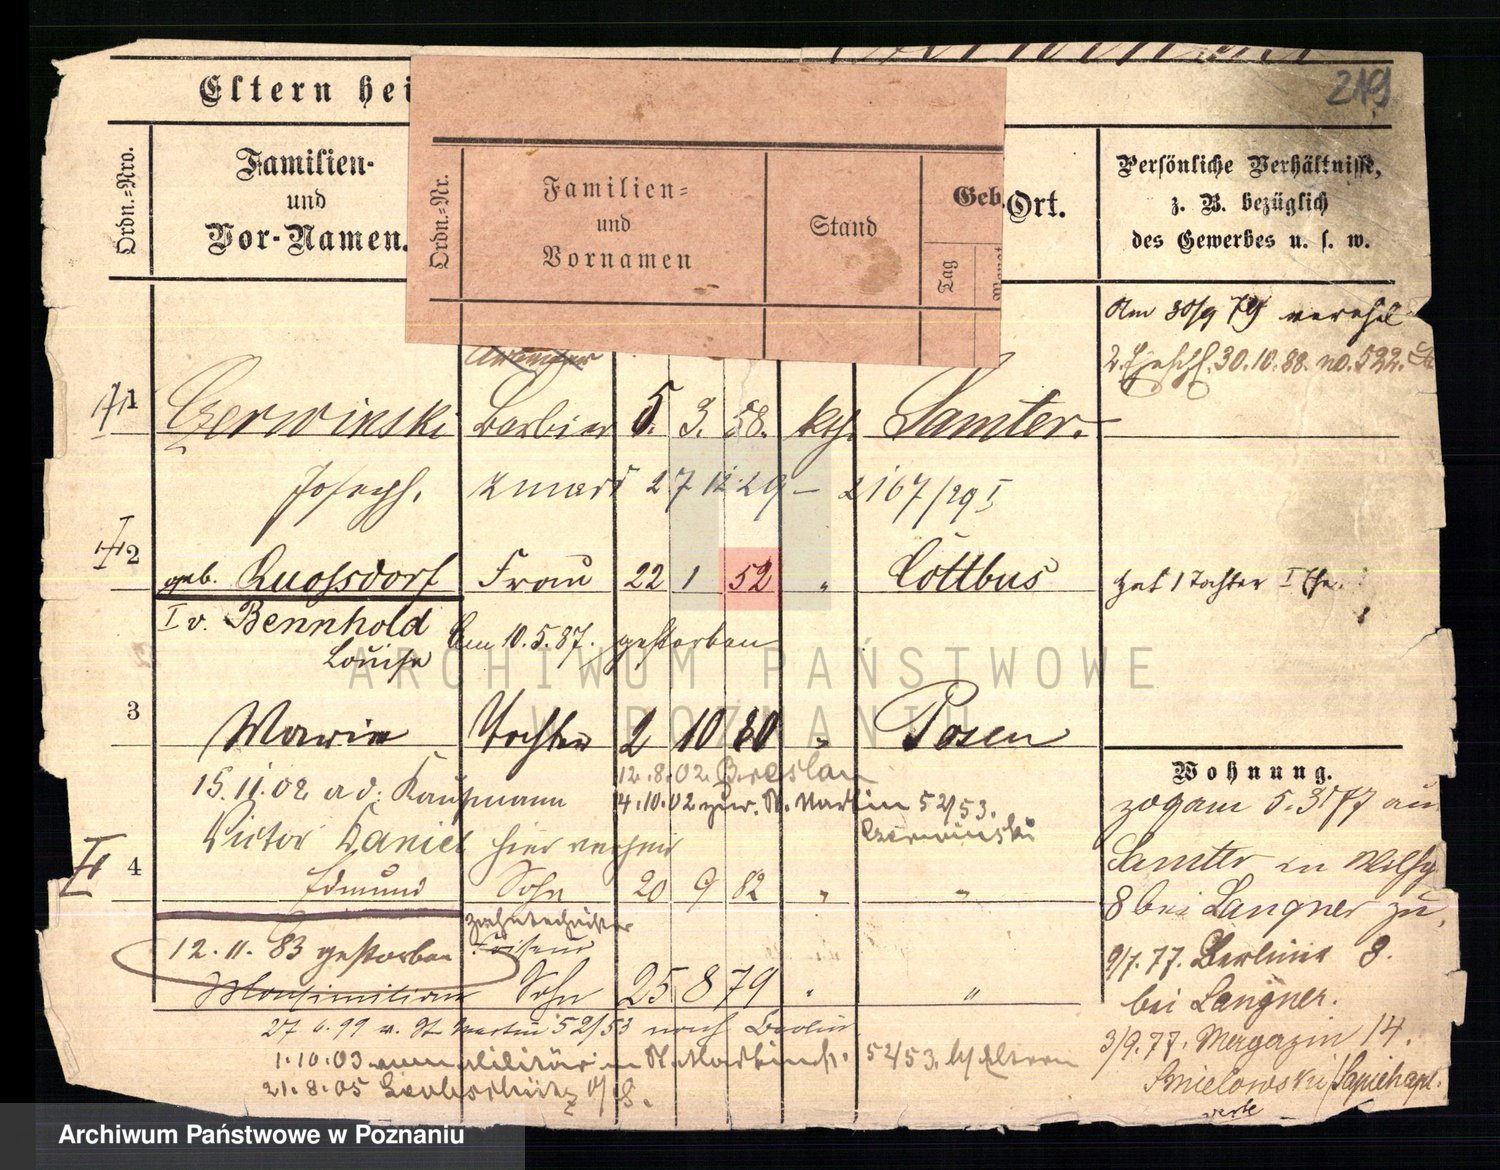 219
Eltern hei
Ordn.-Nro.
Familien-
und
Vor-Namen.
Ordn.-Nr.
Familien-
und
Vornamen
Stand
Geb.
Tag
Ort.
Persönliche Verhältnisse,
z. B. bezüglich
des Gewerbes u. s. w.
Am 30/9 79 verehel
30.10.88. no. 522.
1 Czerwinski Barbier 5. 3. 58. kth. Samter.
Joseph. 27 12 29 – 2167/29 I
2 geb. Quossdorf Frau 22 1 52 " Cottbus
hat 1 Tochter I Ehe.
I v. Bennhold
Louise
am 10.5.87. gestorben
3 Marie Tochter 2 10 80 " Posen
12.8.02. Breslau
15.11.02 Kaufmann
4.10.02 zur. St. Martin 52/53.
Czerwinski
Victor Daniel hier
4 Edmund Sohn 20 9 82 " "
12.11.83 gestorben
Zahntechniker
Friseur
Maximilian Sohn 25 8 79 " "
27 6. 99 v. St Martin 52/53 nach Berlin
1.10.03 zum Militär St. Martinstr. 52/53. b/Eltern
21.8.05 Leobschütz O/S.
Wohnung.
zog am 5.3 77 aus
Samter in
8 bei Langner zu,
9/7. 77. Berliner 8.
bei Langner.
3/9.77. Magazin 14.
Smielowski/Sapiehapl.
verte
ARCHIWUM PAŃSTWOWE
W POZNANIU
Archiwum Państwowe w Poznaniu